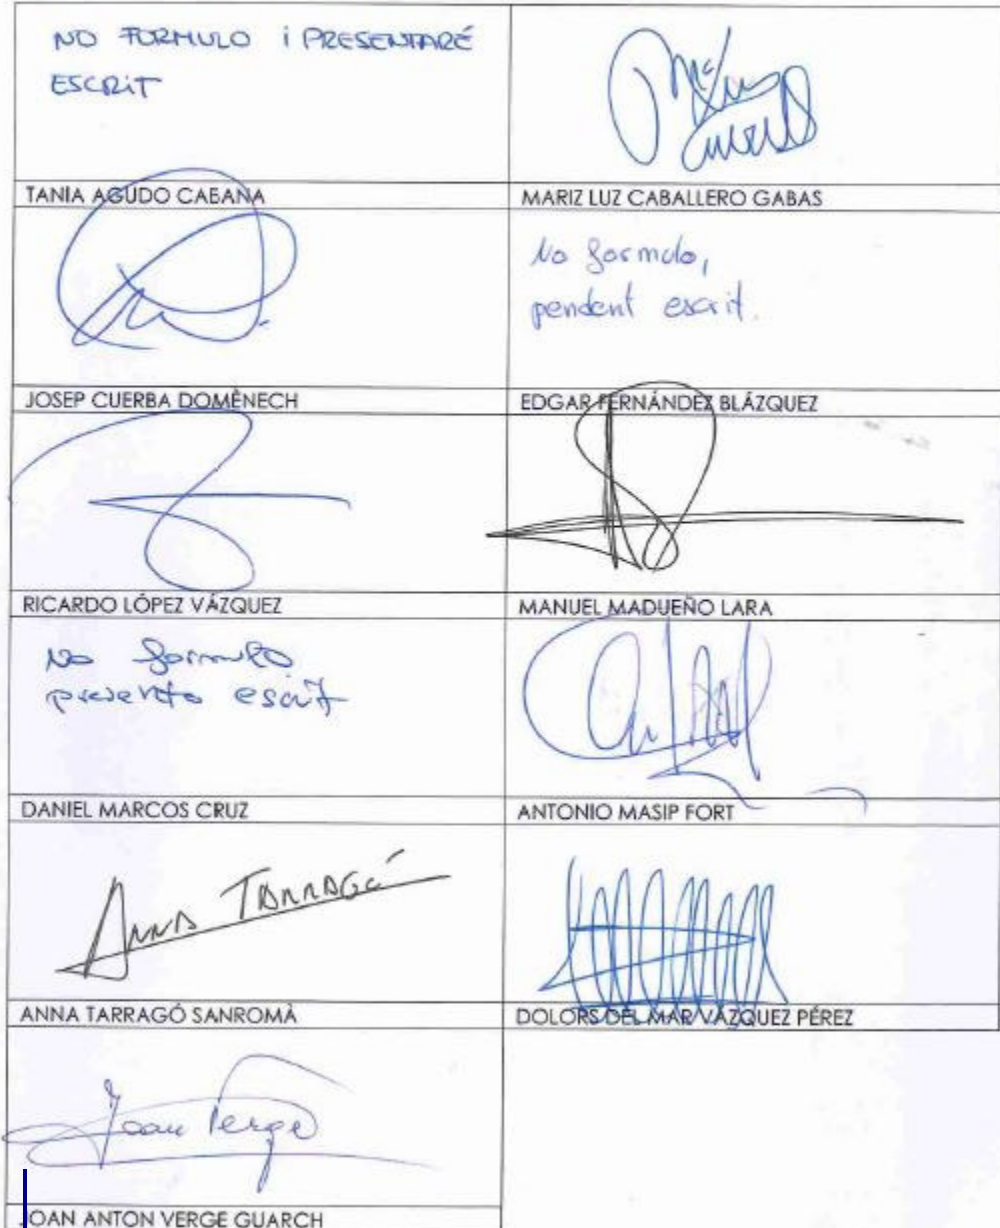 NO FORMULO i PRESENTARÉ
ESCRiT
TANIA AGUDO CABANA
MARIZ LUZ CABALLERO GABAS
No formulo,
pendent escrit.
JOSEP CUERBA DOMÈNECH
EDGAR FERNÁNDEZ BLÁZQUEZ
RICARDO LÓPEZ VÁZQUEZ
MANUEL MADUEÑO LARA
No formulo
presento escrit
DANIEL MARCOS CRUZ
ANTONIO MASIP FORT
ANNA TARRAGÓ
ANNA TARRAGÓ SANROMÀ
DOLORS DEL MAR VÁZQUEZ PÉREZ
Joan Verge
JOAN ANTON VERGE GUARCH